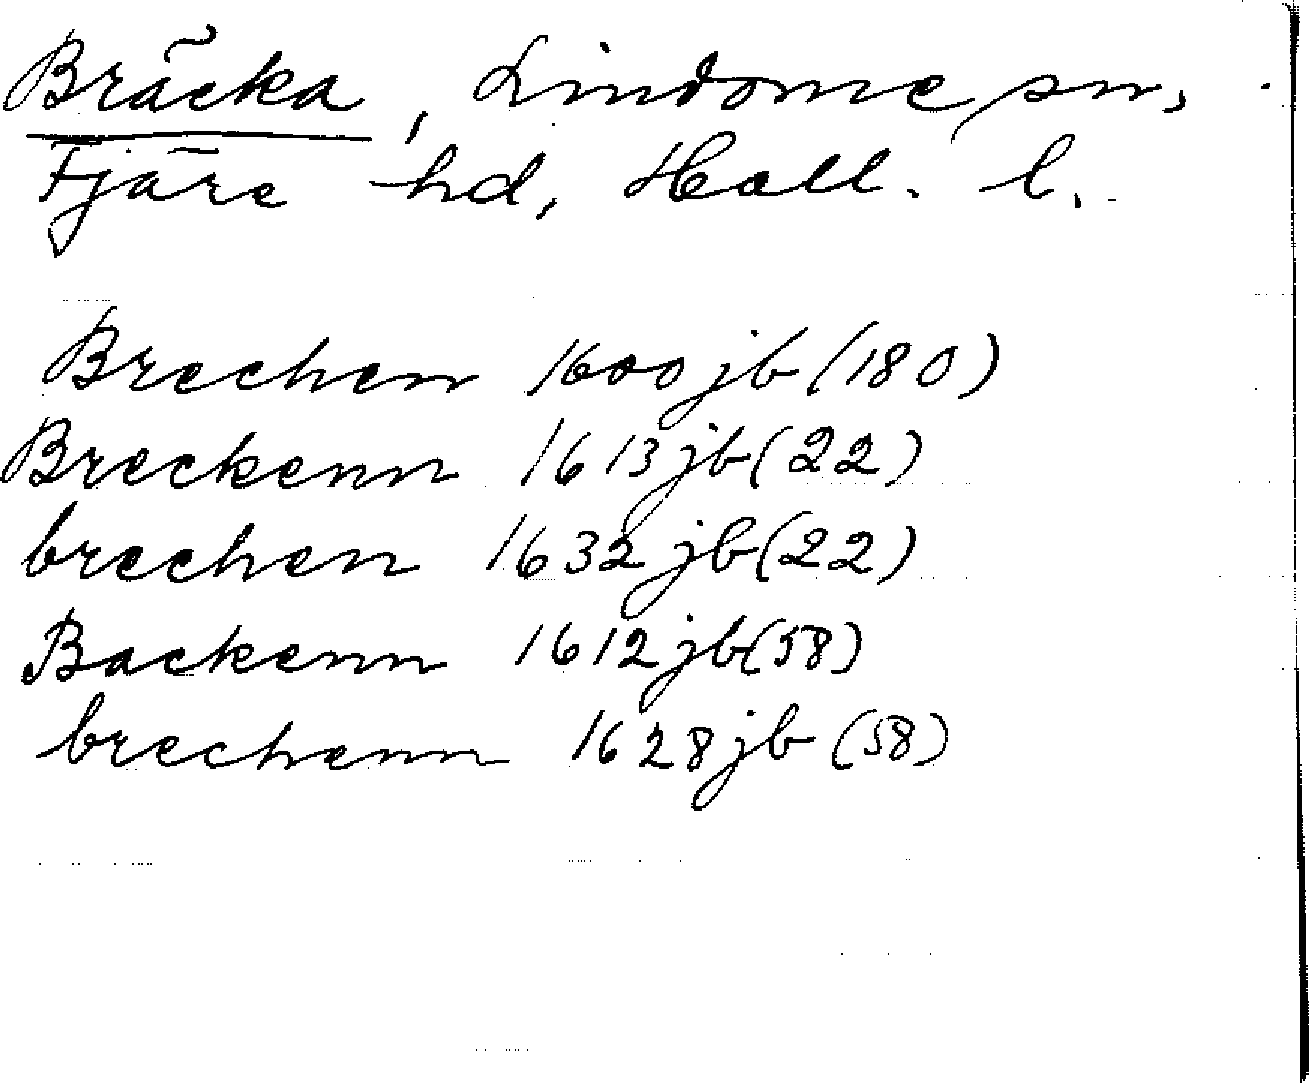 Bräcka, Lindome sn,
Fjäre hd, Hall. l.
Brechen 1600 jb (180)
Breckenn 1613 jb (22)
brechen 1632 jb (22)
Backenn 1612 jb (58)
brechenn 1628 jb (58)